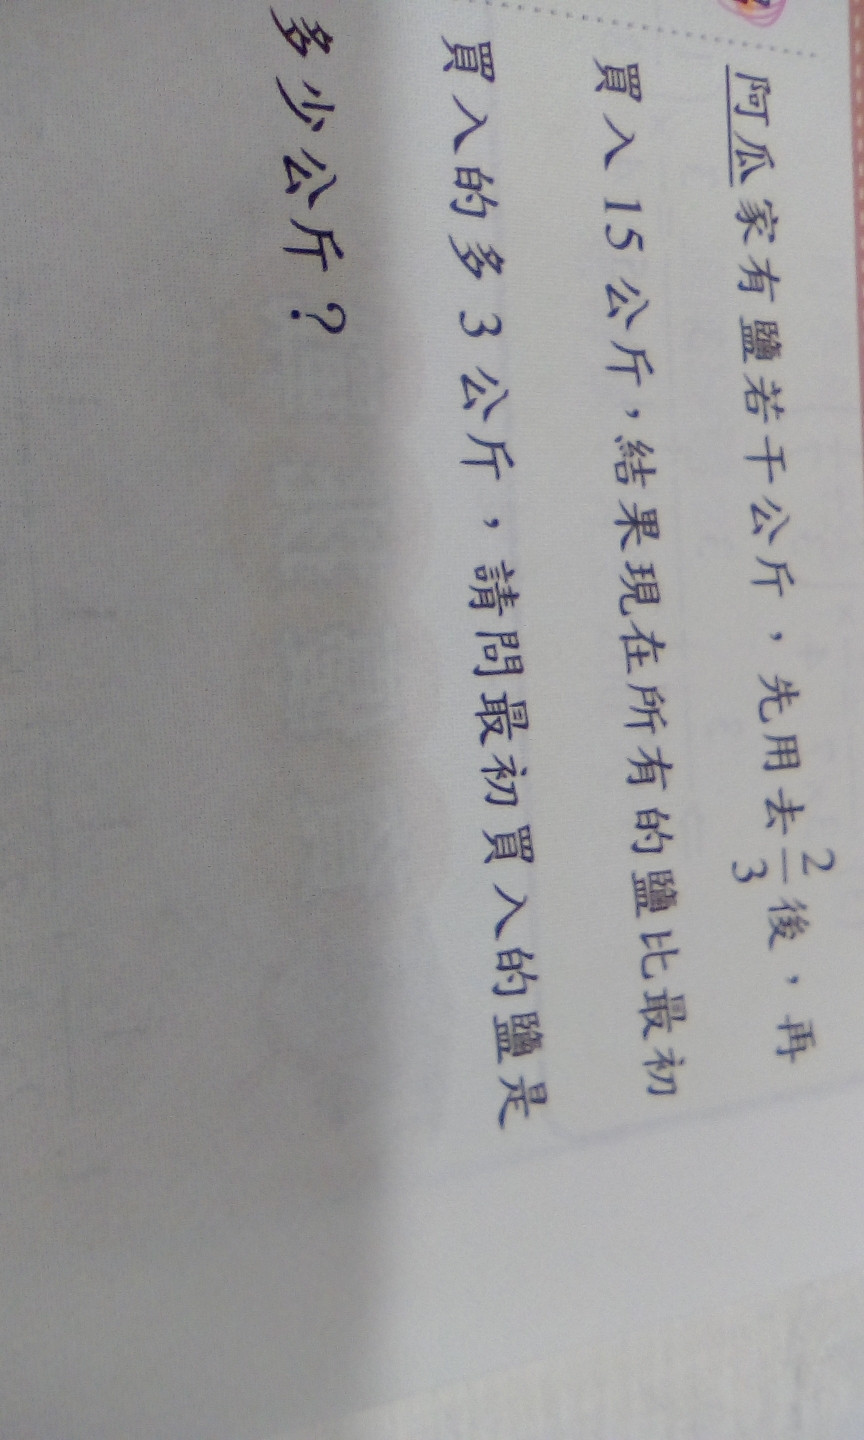 阿瓜家有鹽若干公斤，先用去2/3後，再
買入15公斤，結果現在所有的鹽比最初
買入的多3公斤，請問最初買入的鹽是
多少公斤？